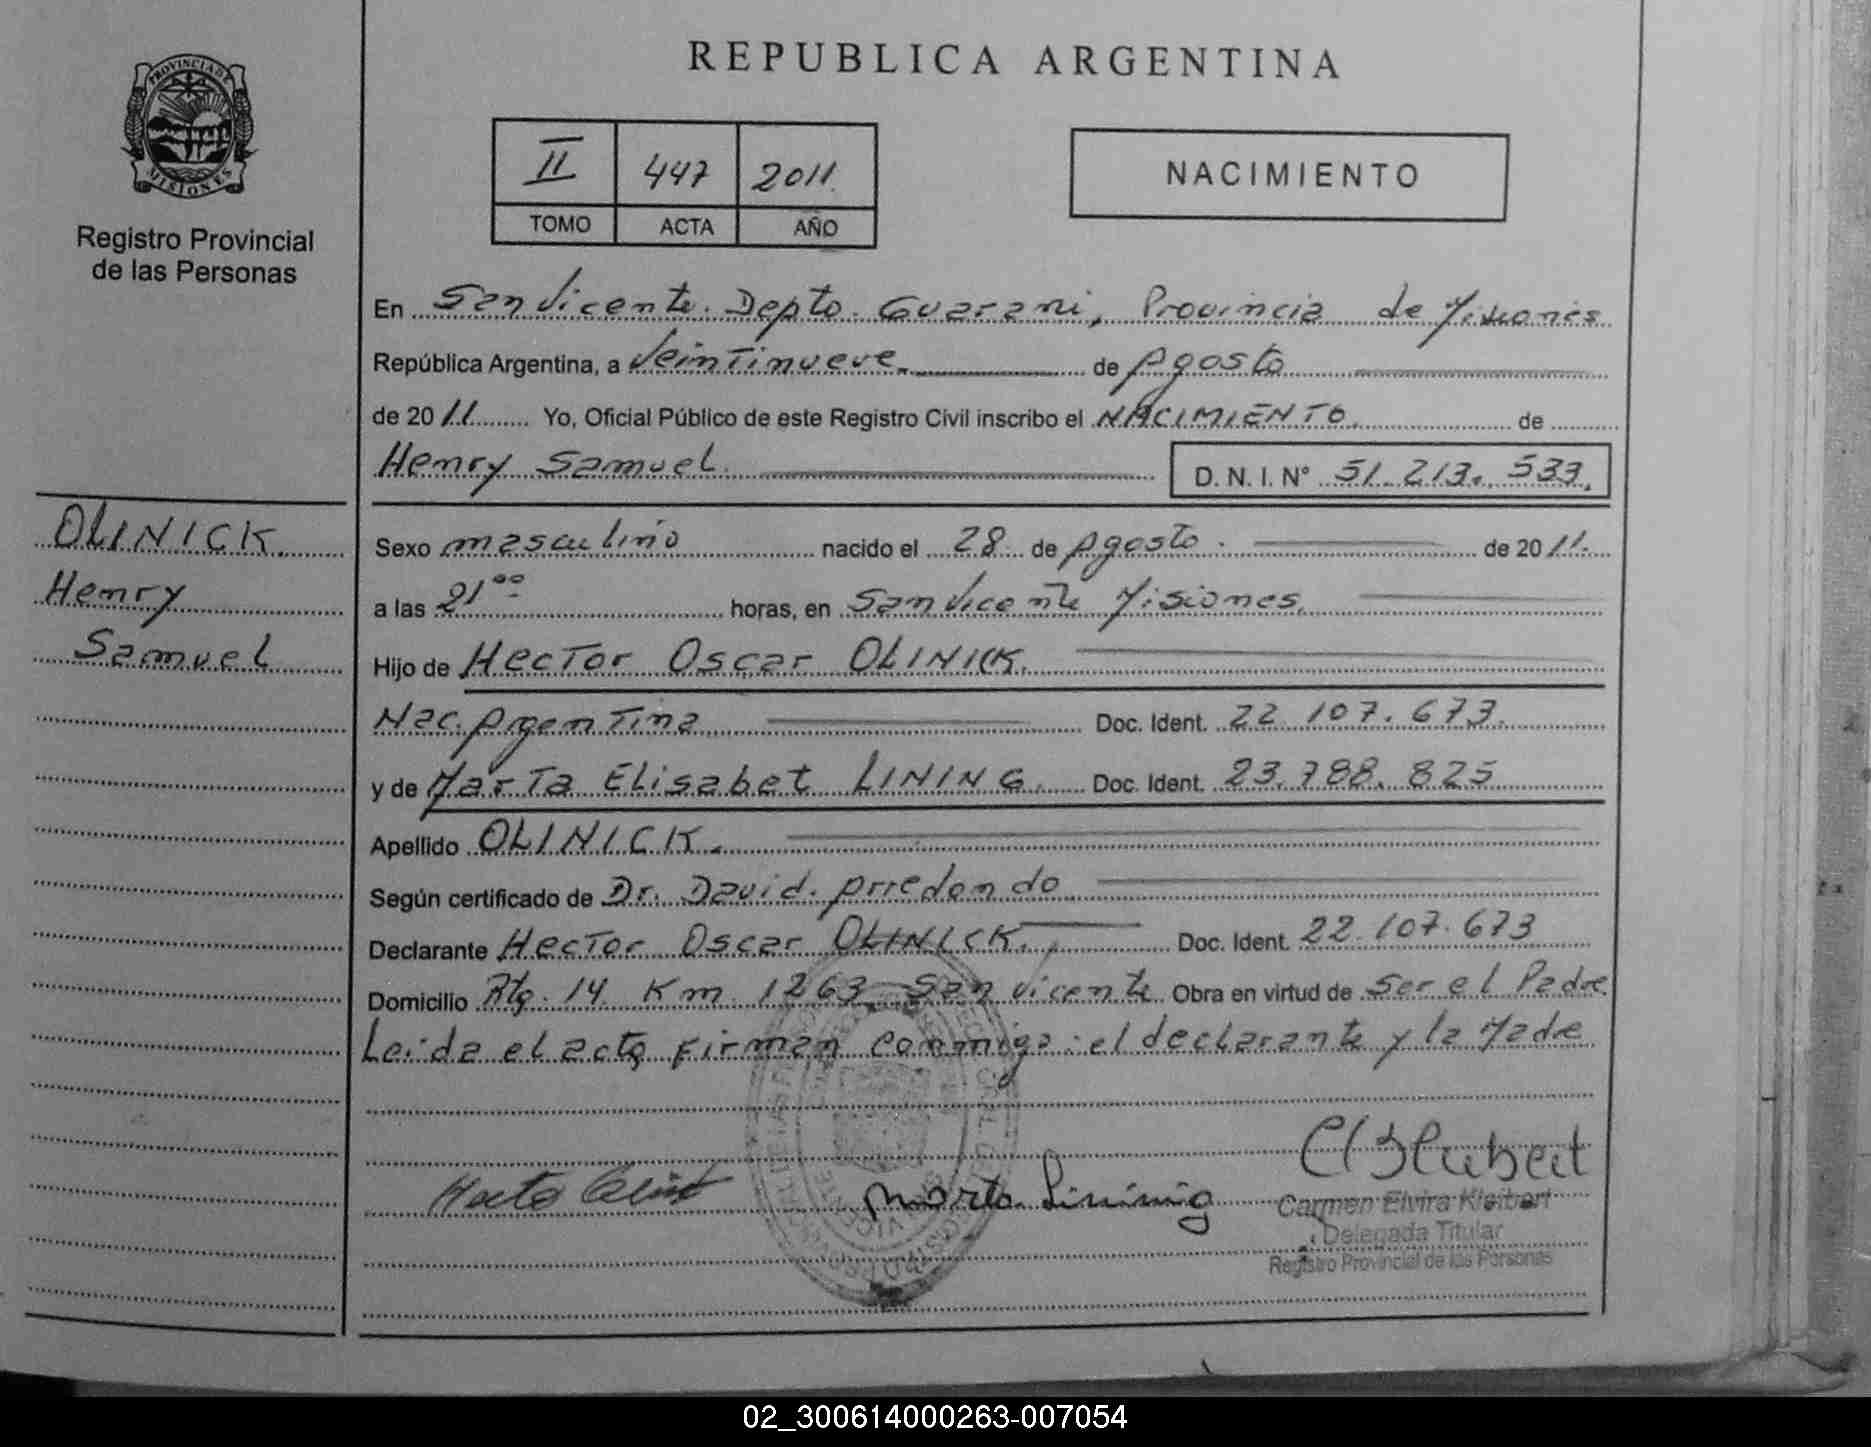 REPUBLICA ARGENTINA
PROVINCIA DE
MISIONES
Registro Provincial
de las Personas
II 447 2011
TOMO ACTA AÑO
NACIMIENTO
En San Vicente. Depto. Guarani, Provincia de Misiones
República Argentina, a Veintinueve. de Agosto
de 2011 Yo, Oficial Público de este Registro Civil inscribo el NACIMIENTO. de
Henry Samuel. D. N. I. Nº 51.213.533.
OLINICK
Henry
Samuel
Sexo masculino nacido el 28 de Agosto. de 2011.
a las 21⁰⁰ horas, en San Vicente Misiones.
Hijo de Hector Oscar OLINICK.
Nac. Argentina Doc. Ident. 22.107.673.
y de Marta Elisabet LINING. Doc. Ident. 23.788.825
Apellido OLINICK.
Según certificado de Dr. David. Arredondo
Declarante Hector Oscar OLINICK. Doc. Ident. 22.107.673
Domicilio Rta. 14 Km. 1263 San Vicente Obra en virtud de Ser el Padre
Leída el acta Firman conmigo: el declarante y la Madre
Marta Lining
Carmen Elvira Kleibert
Delegada Titular
Registro Provincial de las Personas
02_300614000263-007054